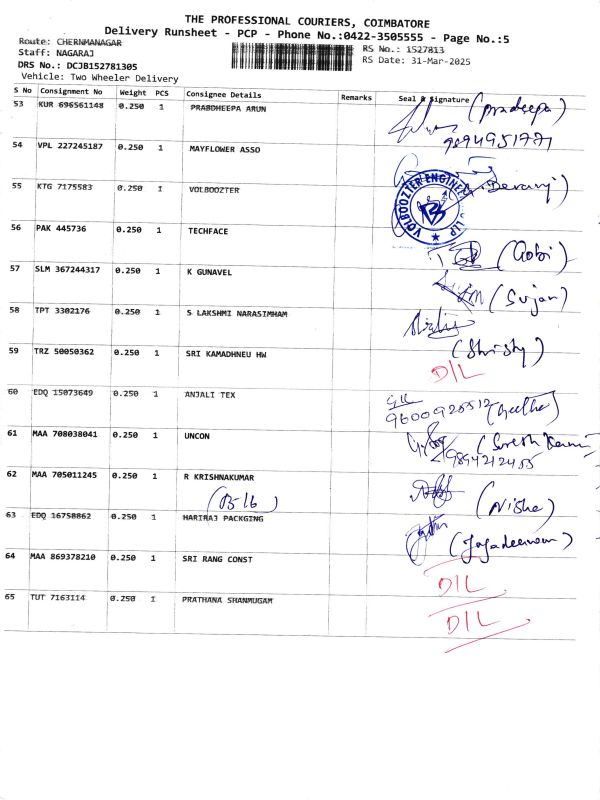 THE PROFESSIONAL COURIERS, COIMBATORE
Delivery Runsheet - PCP - Phone No.:0422-3505555 - Page No.:5
Route: CHERNMANAGAR
Staff: NAGARAJ
RS No.: 1527813
DRS No.: DCJB152781305
RS Date: 31-Mar-2025
Vehicle: Two Wheeler Delivery
S No Consignment No Weight PCS Consignee Details Remarks Seal & Signature
53 KUR 696561148 0.250 1 PRABDHEEPA ARUN (pradeepa)
9894951771
54 VPL 227245187 0.250 1 MAYFLOWER ASSO
55 KTG 7175583 0.250 1 VOLBOOZTER
VOLBOOZTER ENGINEERS LLP
56 PAK 445736 0.250 1 TECHFACE (Gobi)
57 SLM 367244317 0.250 1 K GUNAVEL (Sujan)
58 TPT 3302176 0.250 1 S LAKSHMI NARASIMHAM
59 TRZ 50050362 0.250 1 SRI KAMADHNEU HW D/L
60 EDQ 15073649 0.250 1 ANJALI TEX (Geetha)
61 MAA 708038041 0.250 1 UNCON
9894212455
62 MAA 705011245 0.250 1 R KRISHNAKUMAR (Nisha)
(B-16)
63 EDQ 16758862 0.250 1 HARIRAJ PACKGING
64 MAA 869378210 0.250 1 SRI RANG CONST D/L
65 TUT 7163114 0.250 1 PRATHANA SHANMUGAM D/L